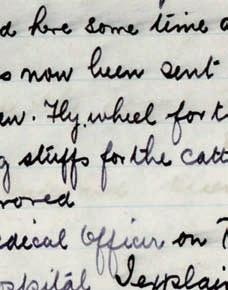 d here some time a
s now been sent
ew. Fly wheel for t
g stuffs for the catt
roved
edical Officer on T
ospital I explain